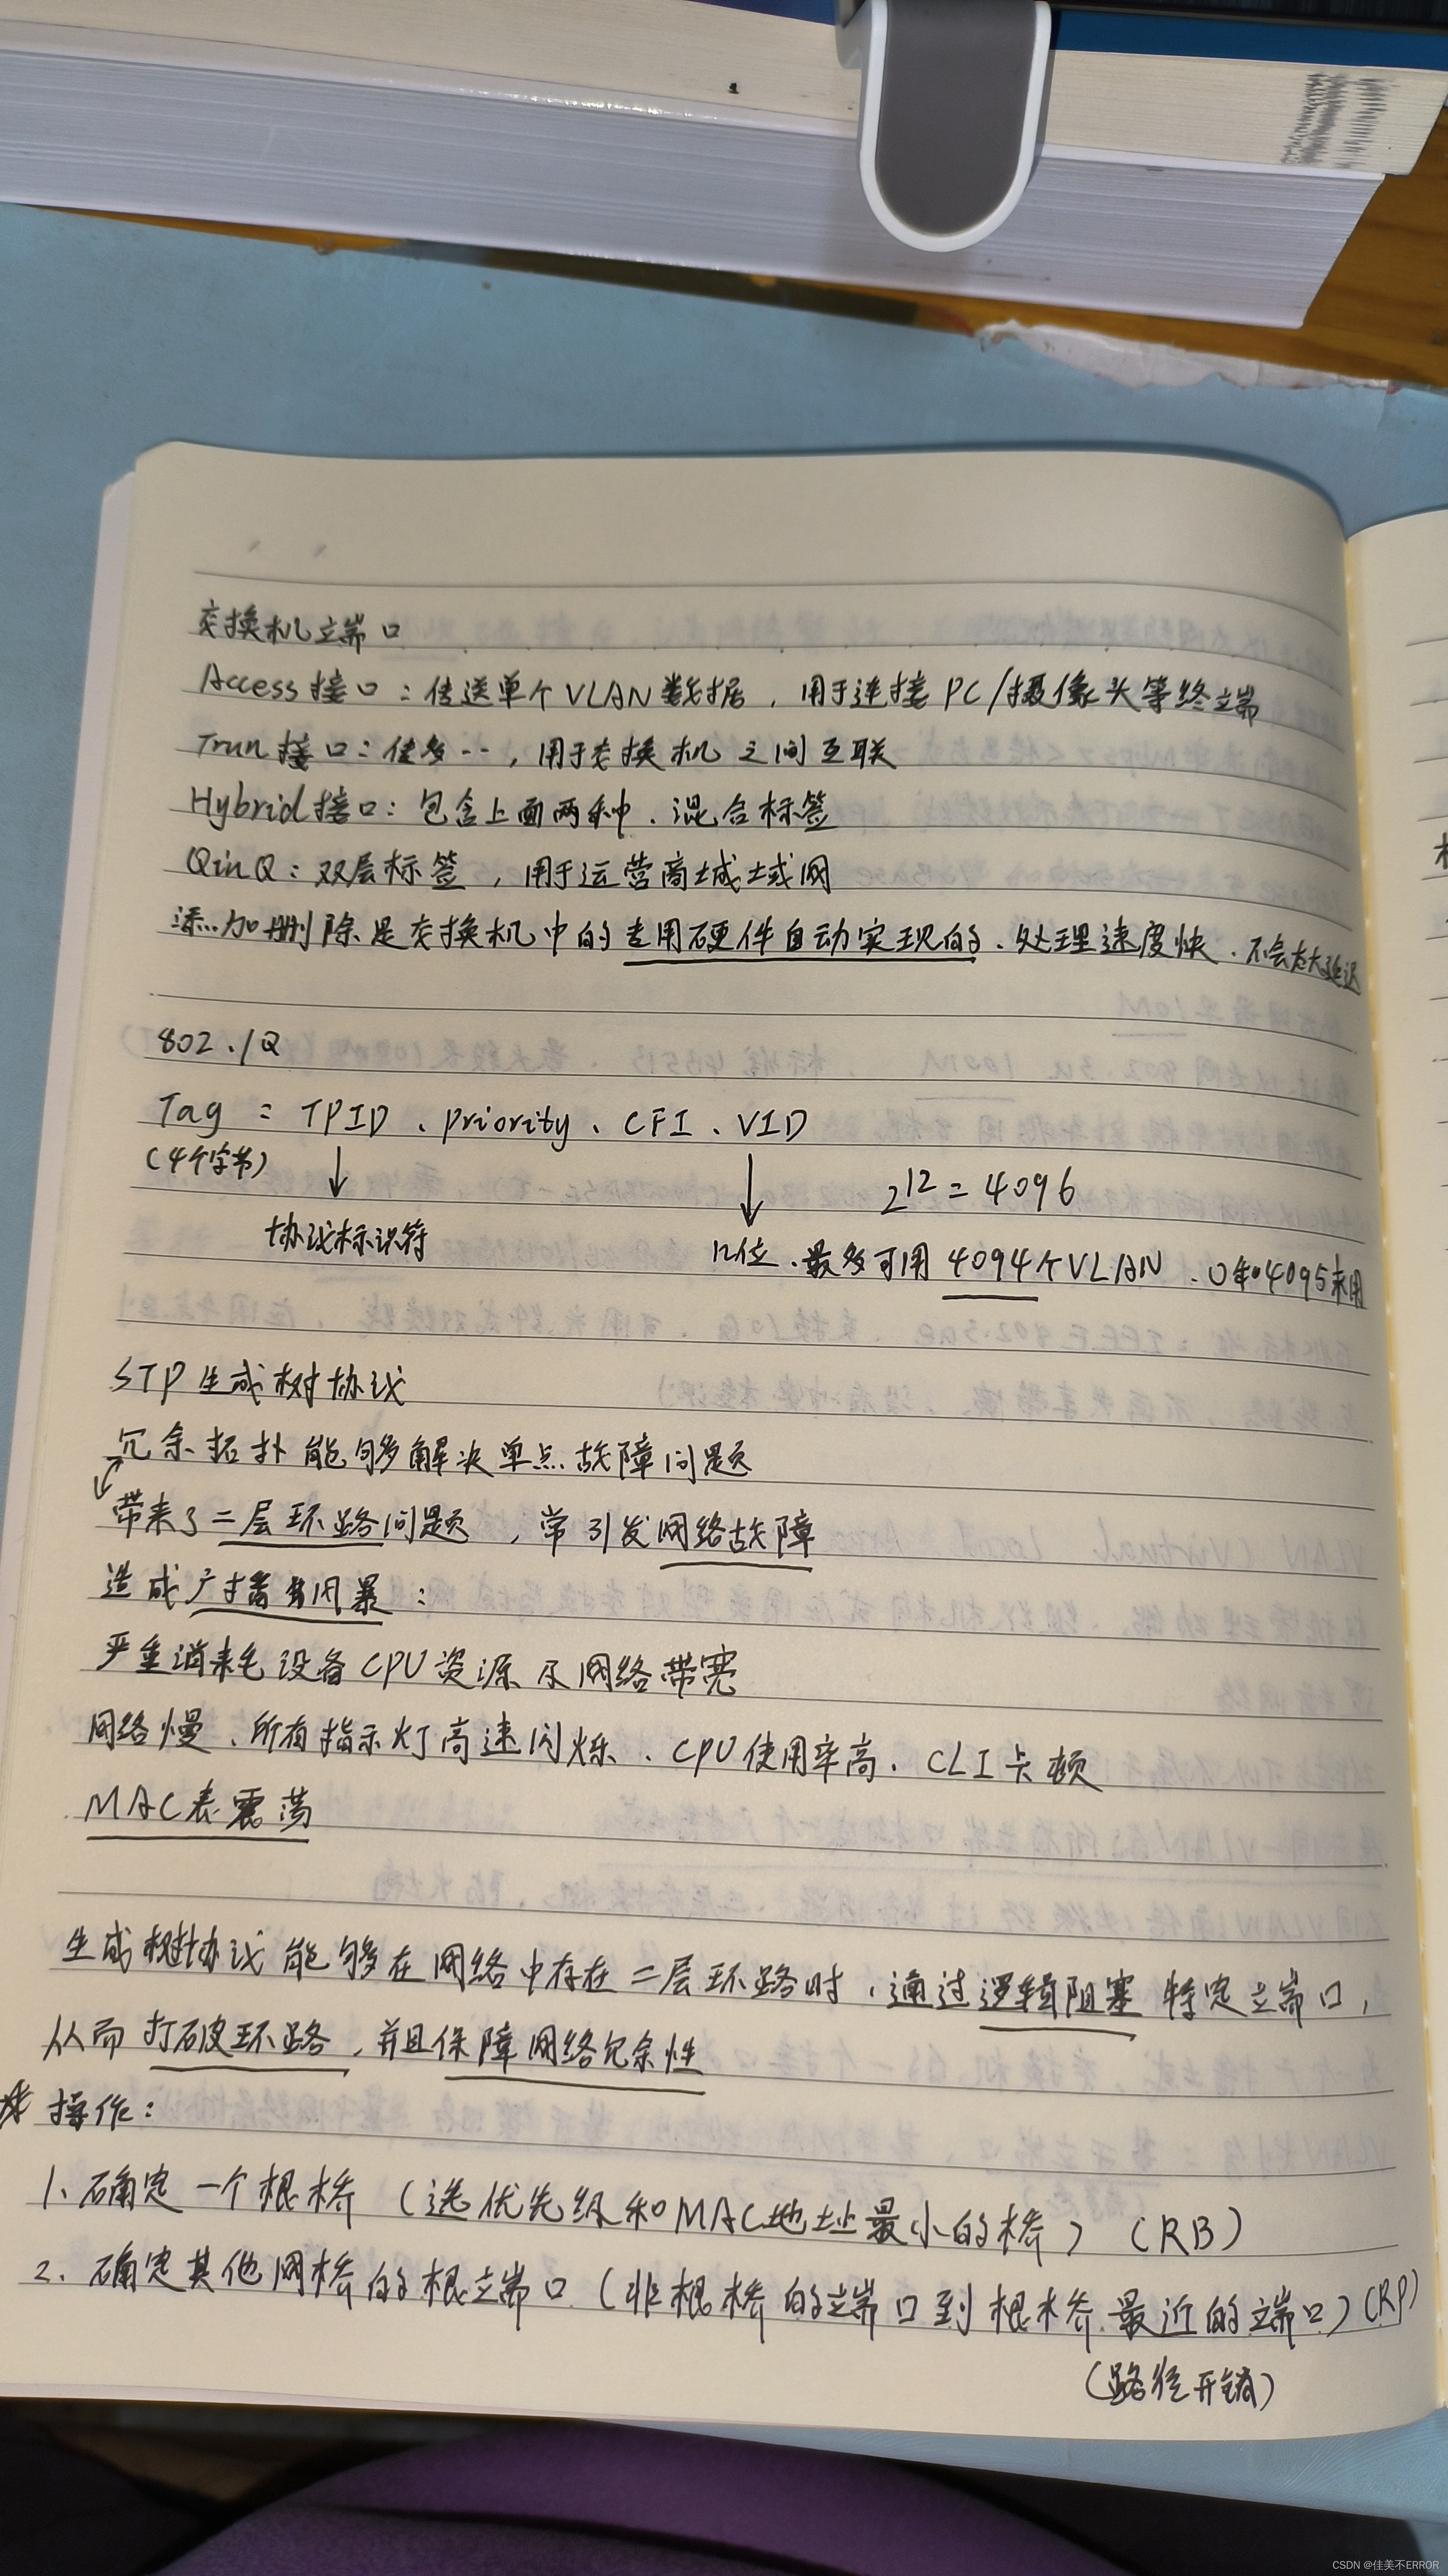 交换机端口
Access接口：传送单个VLAN数据，用于连接PC/摄像头等终端
Trun接口：传多··，用于交换机之间互联
Hybrid接口：包含上面两种、混合标签
QinQ：双层标签，用于运营商城域网
添加删除是交换机中的专用硬件自动实现的、处理速度快、不会太大延迟
802.1Q
Tag = TPID、priority、CFI、VID
(4个字节)
2^12 = 4096
协议标识符
12位、最多可用4094个VLAN、0和4095未用
STP生成树协议
冗余拓扑能够解决单点故障问题
带来了二层环路问题，常引发网络故障
造成广播风暴：
严重消耗设备CPU资源及网络带宽
网络慢、所有指示灯高速闪烁、CPU使用率高、CLI卡顿
MAC表震荡
生成树协议能够在网络中存在二层环路时，通过逻辑阻塞特定端口，
从而打破环路，并且保障网络冗余性
操作：
1、确定一个根桥（选优先级和MAC地址最小的桥）（RB）
2、确定其他网桥的根端口（非根桥的端口到根桥最近的端口）(RP)
（路径开销）
CSDN @佳美不ERROR